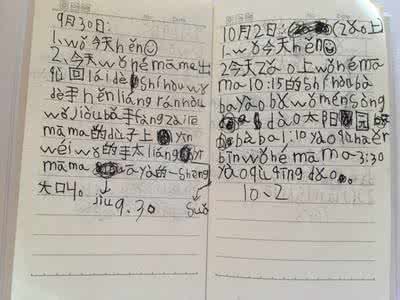 9月30日:
1、wǒ今天hěn
2、今天wǒhémāma出
回lái dè shíhòuw
dè手hěn liáng ránhòu
wǒ jiù bǎ手fàng zài le
māma的bózi上 yīn
wéi wǒ的手太liáng
māma a yā的一shēng
大口4。
jiù 9.30 suǒ
10月2日: zǎo上
1、wǒ今天hěn
2今天zǎo上wǒhémā
ma10:15的shíhòubà
ba yào bǎ wǒmen sòng
dào太阳园
bàba1:10yào qù hā'ěr
bīn wǒ hé māma3:30
yào qù qīng dǎo。
10、2